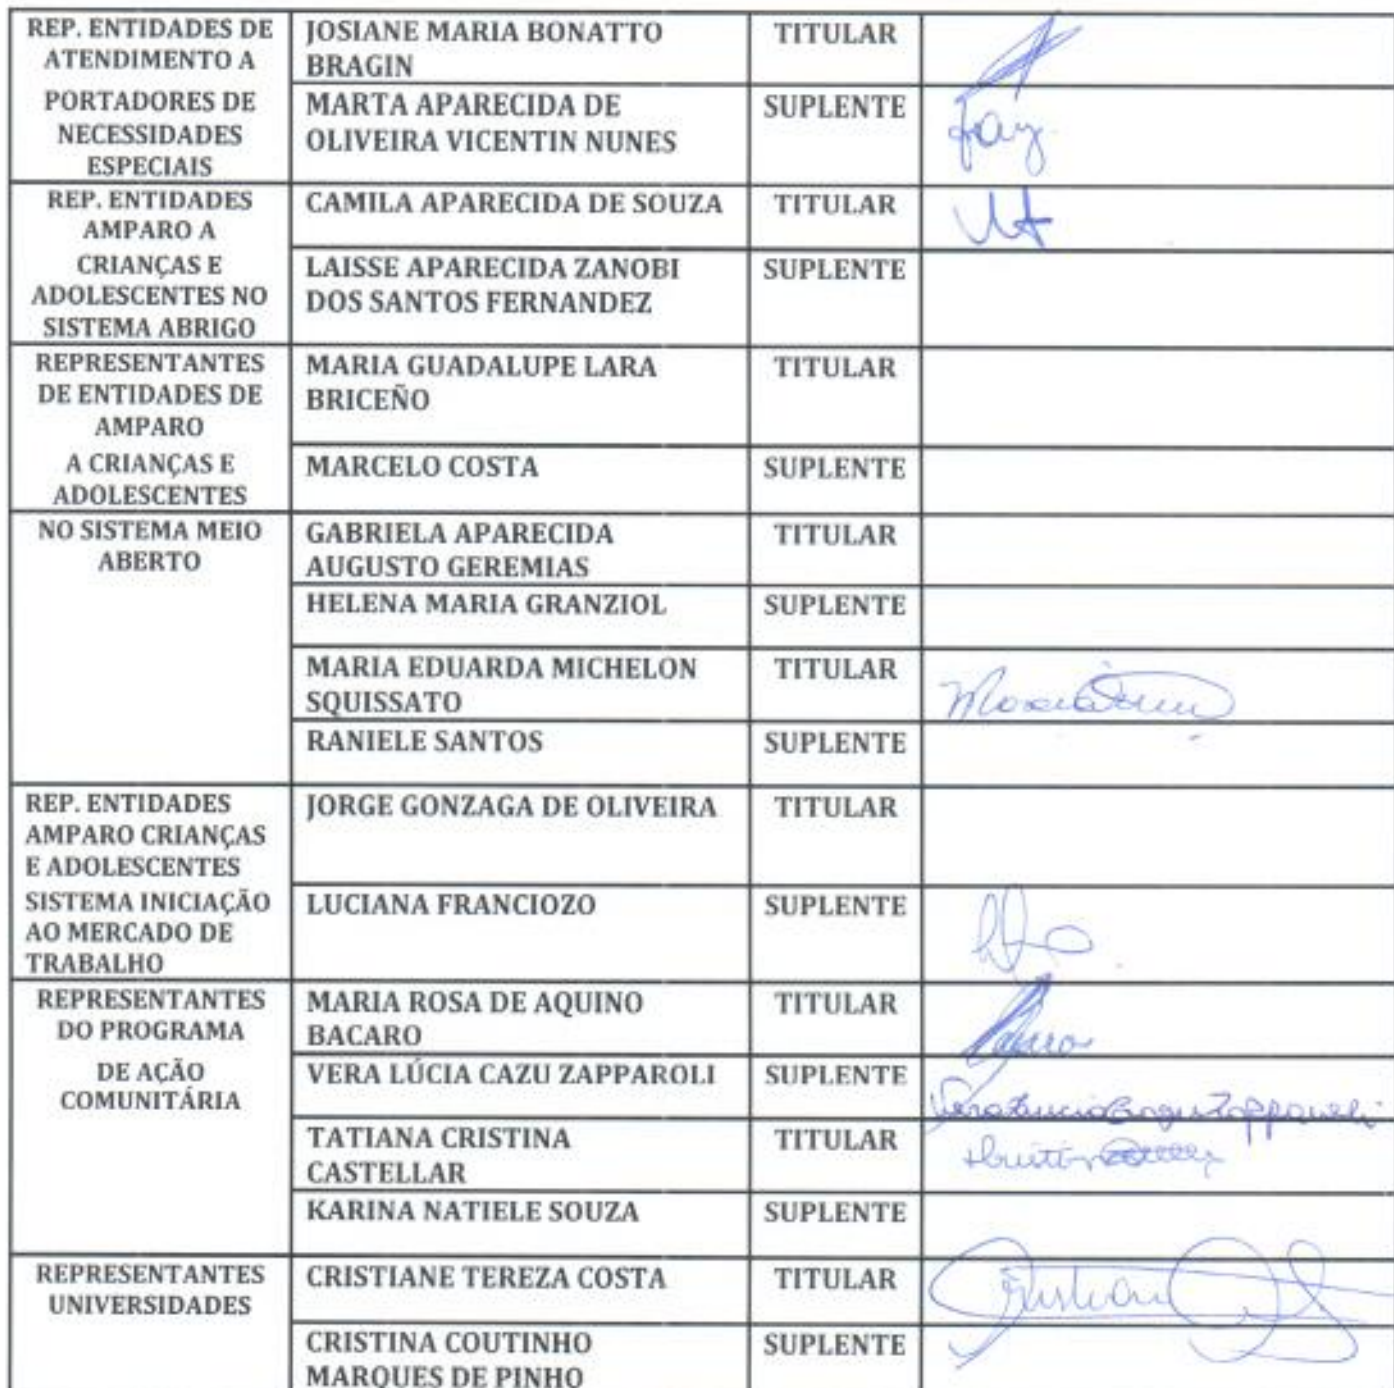 REP. ENTIDADES DE
ATENDIMENTO A
PORTADORES DE
NECESSIDADES
ESPECIAIS
JOSIANE MARIA BONATTO
BRAGIN
TITULAR
MARTA APARECIDA DE
OLIVEIRA VICENTIN NUNES
SUPLENTE
REP. ENTIDADES
AMPARO A
CRIANÇAS E
ADOLESCENTES NO
SISTEMA ABRIGO
CAMILA APARECIDA DE SOUZA
TITULAR
LAISSE APARECIDA ZANOBI
DOS SANTOS FERNANDEZ
SUPLENTE
REPRESENTANTES
DE ENTIDADES DE
AMPARO
A CRIANÇAS E
ADOLESCENTES
MARIA GUADALUPE LARA
BRICEÑO
TITULAR
MARCELO COSTA
SUPLENTE
NO SISTEMA MEIO
ABERTO
GABRIELA APARECIDA
AUGUSTO GEREMIAS
TITULAR
HELENA MARIA GRANZIOL
SUPLENTE
MARIA EDUARDA MICHELON
SQUISSATO
TITULAR
RANIELE SANTOS
SUPLENTE
REP. ENTIDADES
AMPARO CRIANÇAS
E ADOLESCENTES
SISTEMA INICIAÇÃO
AO MERCADO DE
TRABALHO
JORGE GONZAGA DE OLIVEIRA
TITULAR
LUCIANA FRANCIOZO
SUPLENTE
REPRESENTANTES
DO PROGRAMA
DE AÇÃO
COMUNITÁRIA
MARIA ROSA DE AQUINO
BACARO
TITULAR
VERA LÚCIA CAZU ZAPPAROLI
SUPLENTE
TATIANA CRISTINA
CASTELLAR
TITULAR
KARINA NATIELE SOUZA
SUPLENTE
REPRESENTANTES
UNIVERSIDADES
CRISTIANE TEREZA COSTA
TITULAR
CRISTINA COUTINHO
MARQUES DE PINHO
SUPLENTE